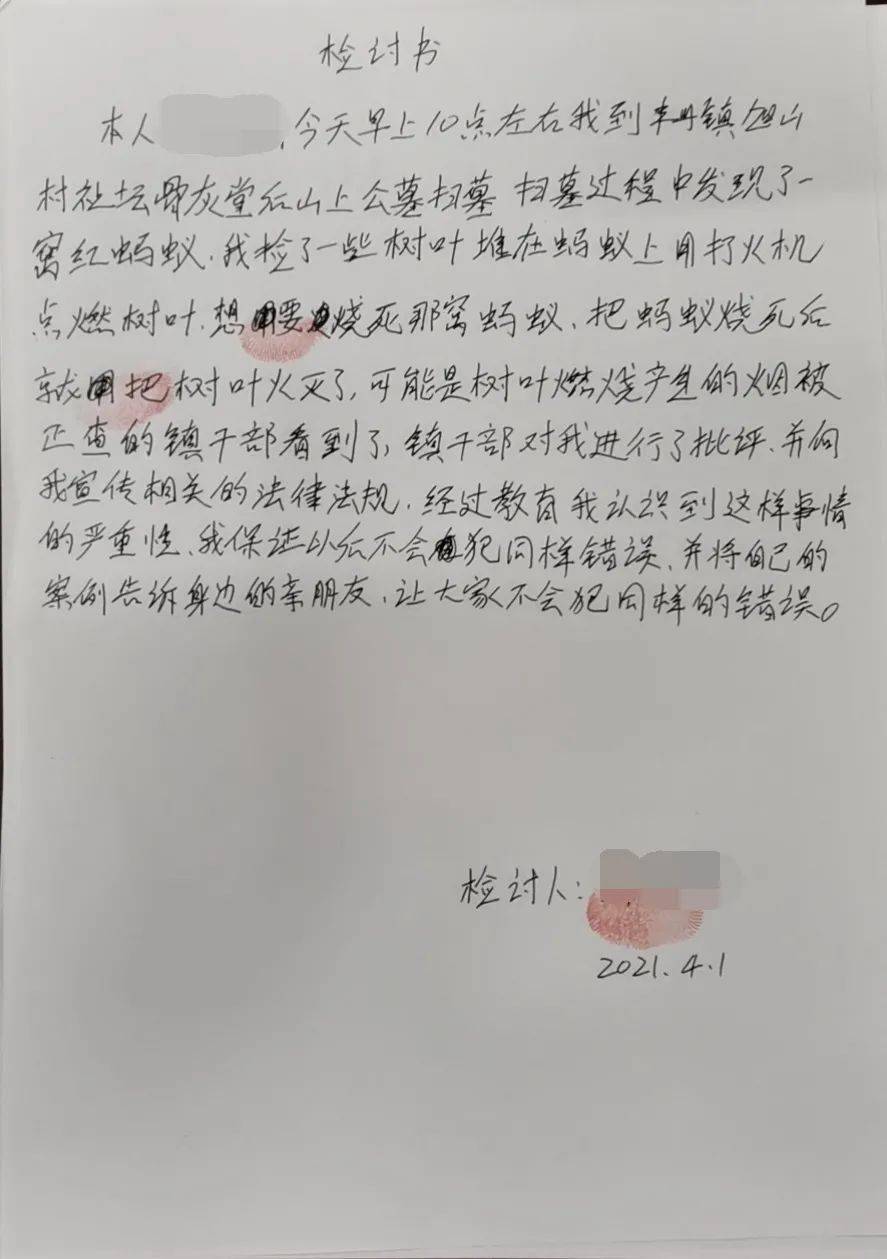 检讨书
本人 ,今天早上10点左右我到 镇旭山
村社坛骨灰堂后山上公墓扫墓 扫墓过程中发现了一
窝红蚂蚁.我捡了一些树叶堆在蚂蚁上用打火机
点燃树叶.想要烧死那窝蚂蚁、把蚂蚁烧死后
就把树叶火灭了,可能是树叶燃烧产生的烟被
正查的镇干部看到了,镇干部对我进行了批评.并向
我宣传相关的法律法规.经过教育我认识到这样事情
的严重性、我保证以后不会犯同样错误、并将自己的
案例告诉身边的亲朋友.让大家不会犯同样的错误。
检讨人:
2021.4.1